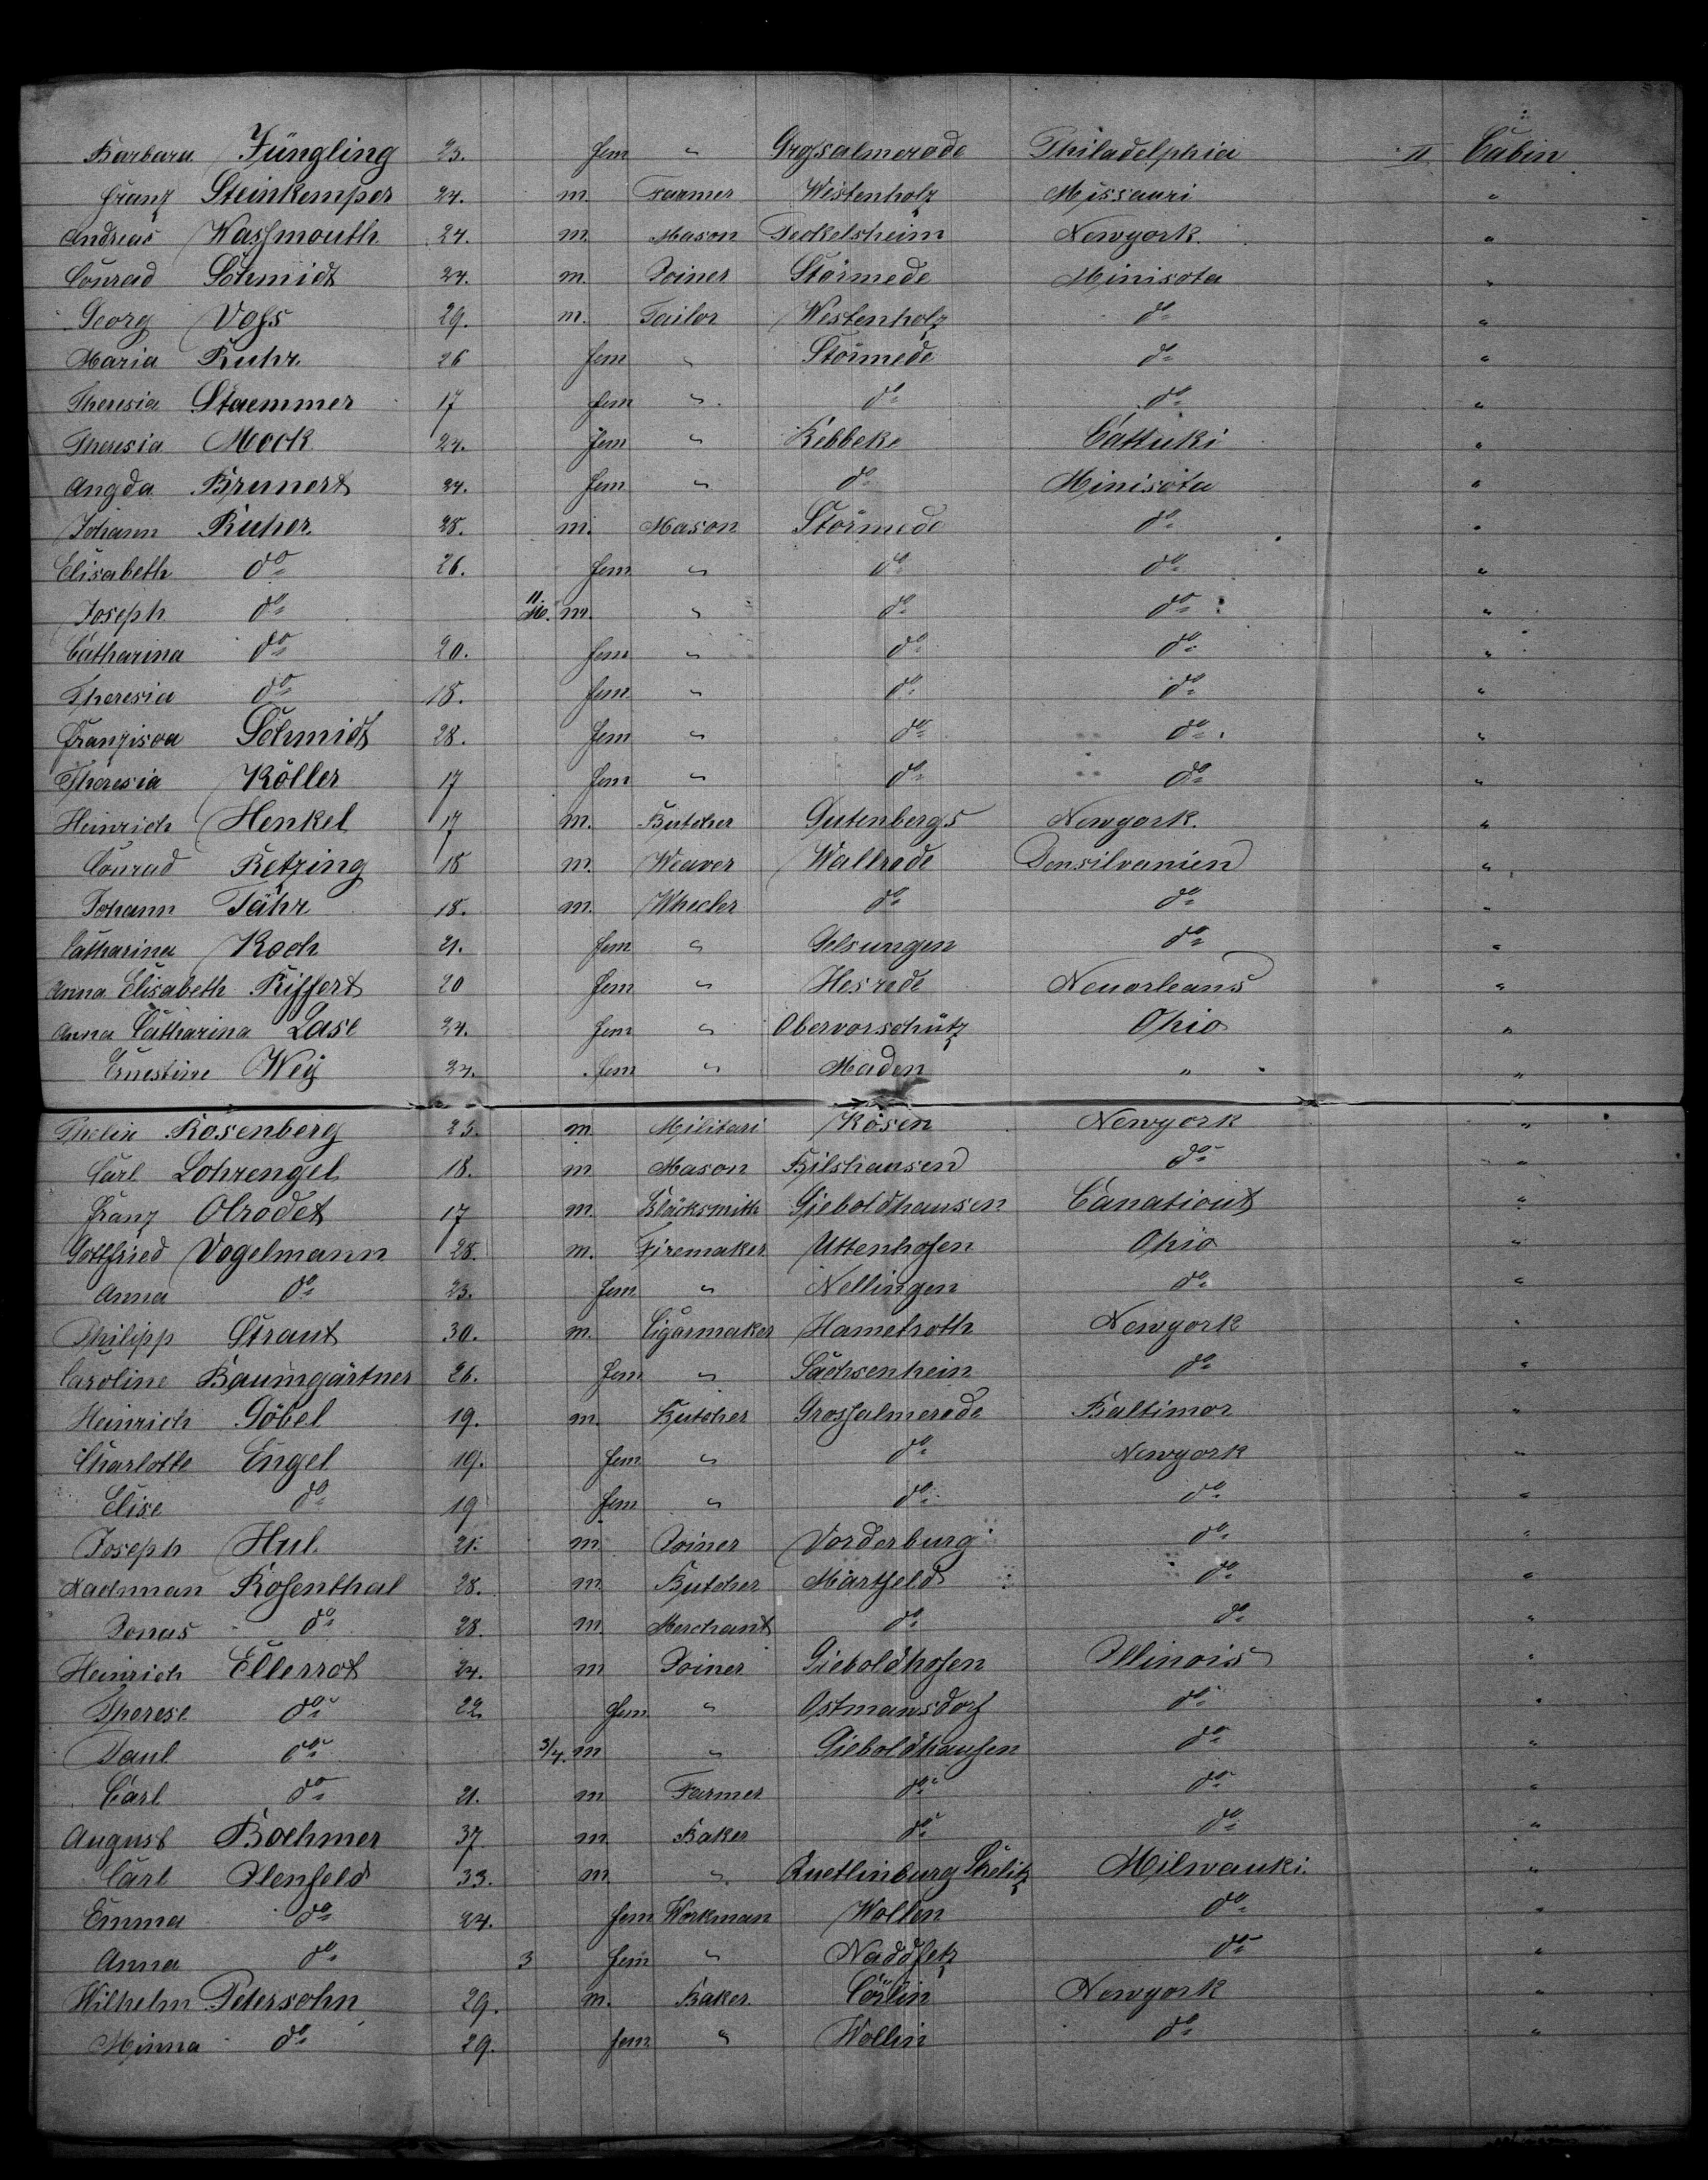 Barbara Jüngling 23. fem " Grossalmerode Philadelphia II Cabin
Franz Steinkemper 24. m. Farmer Westenholz Missauri "
Andreas Wassmouth 24. m. Mason Peckelsheim Newyork "
Conrad Schmidt 24. m. Joiner Störmede Minisota "
Georg Voss 29. m. Tailor Westenholz do "
Maria Ruhr 26 fem " Störmede do "
Theresia Staemmer 17 fem " do do "
Theresia Mock 24. fem " Rebbeke Cattuki "
Angda Brunert 24. fem " do Minisota "
Johann Ruher 28. m. Mason Störmede do "
Elisabeth do 26. fem " do do "
Joseph do 11. M. m. " do do "
Catharina do 20. fem " do do "
Theresia do 18. fem " do do "
Franzisca Schmidt 28. fem " do do "
Theresia Köller 17 fem " do do "
Heinrich Henkel 17 m. Butcher Gutenbergs Newyork "
Conrad Retzing 18 m. Weaver Wallrode Pensilvanien "
Johann Fähr 18. m. Wheeler do do "
Catharina Koch 21. fem " Gelsungen do "
Anna Elisabeth Riffert 20 fem " Hesrode Neuorleans "
Anna Catharina Lase 24. fem " Obervorschütz Ohio "
Ernestine Weij 24. fem " Maden " "
Phelix Rosenberg 23. m Militari Kösen Newyork "
Carl Lohrengel 18. m Mason Bilshausen do "
Franz Olrodet 17 m. Blacksmith Gieboldhausen Canaticut "
Gottfried Vogelmann 28. m. Firemaker Uttenhofen Ohio "
Anna do 23. fem " Nellingen do "
Philipp Straut 30. m. Cigarmaker Hamelroth Newyork "
Caroline Baumgärtner 26. fem " Sachsenhein do "
Heinrich Göbel 19. m. Butcher Grossalmerode Baltimor "
Charlotte Engel 19. fem " do Newyork "
Elise do 19 fem " do do "
Joseph Hul 21. m Joiner Vorderburg do "
Nachman Rosenthal 28. m Butcher Martfeld do "
Jonas do 28. m Merchant do do "
Heinrich Ellerrot 24. m Joiner Gieboldhofen Illinois "
Therese do 22 fem " Ostmansdorf do "
Paul do 3/4. m " Gieboldhausen do "
Carl do 21. m Farmer do do "
August Boehmer 37 m Baker do do "
Carl Ilenfeld 33. m " Quetlinburg Milwauki "
Emma do 24. fem Workman Wollen do "
Anna do 3 fem " do "
Wilhelm Petersohn 29. m. Baker Cörlin Newyork "
Minna do 29. fem " Wollin do "